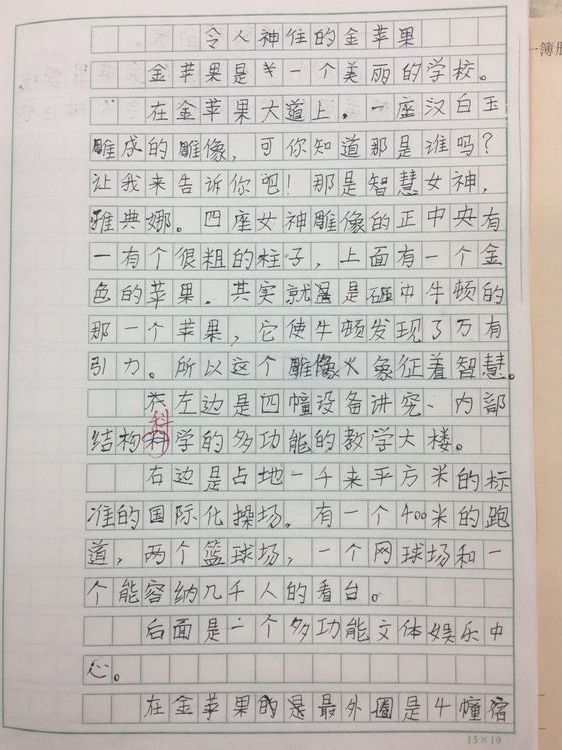 令人神住的金苹果
金苹果是一个美丽的学校。
在金苹果大道上，一座汉白玉
雕成的雕像，可你知道那是谁吗？
让我来告诉你吧！那是智慧女神，
雅典娜。四座女神雕像的正中央有
一有个很粗的柱子，上面有一个金
色的苹果．其实就是砸中牛顿的
那一个苹果，它使牛顿发现了万有
引力。所以这个雕像象征着智慧。
左边是四幢设备讲究、内部
科
结构科学的多功能的教学大楼。
右边是占地一千来平方米的标
准的国际化操场。有一个400米的跑
道，两个篮球场，一个网球场和一
个能容纳几千人的看台。
后面是一个多功能文体娱乐中
心。
在金苹果的是最外圈是4幢宿
15×19
簿册